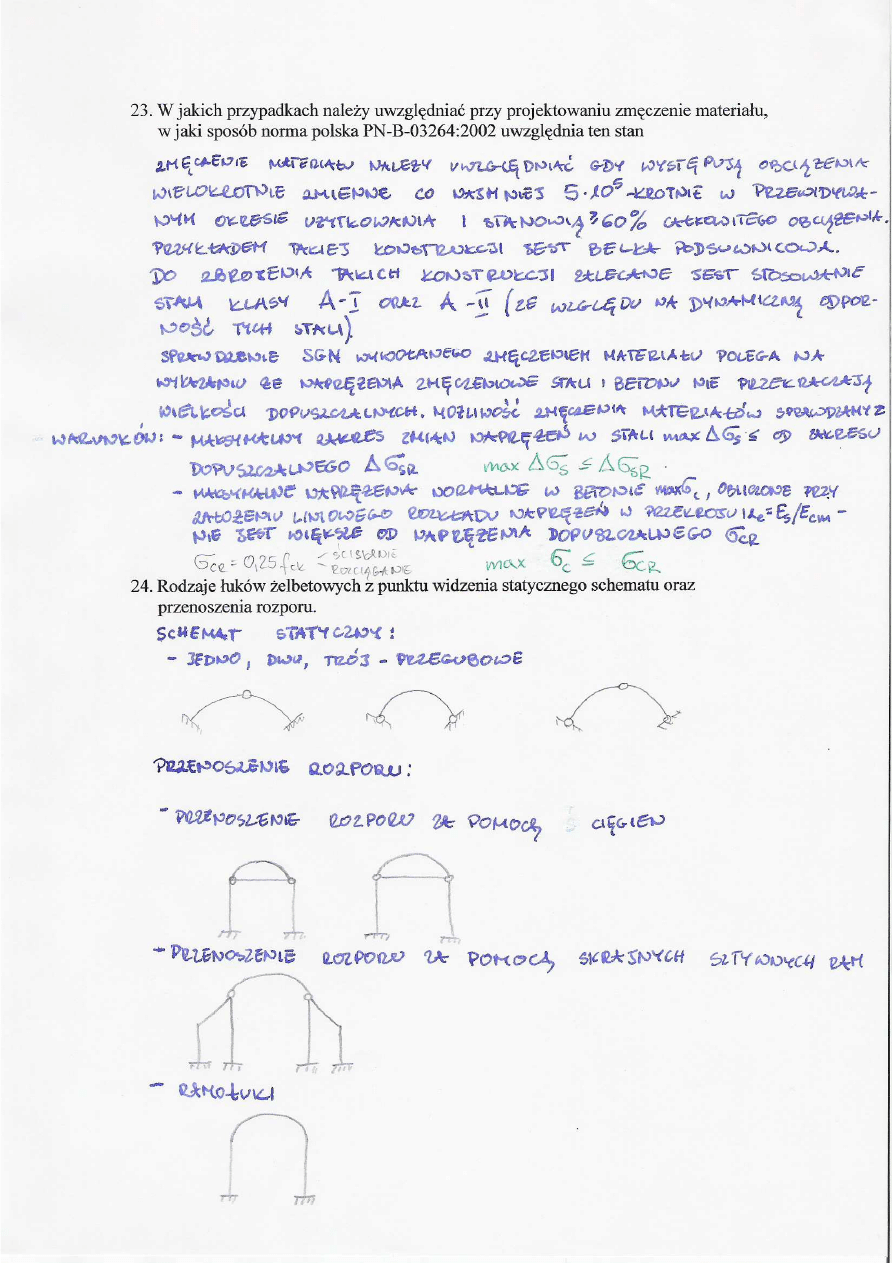 23. W jakich przypadkach należy uwzględniać przy projektowaniu zmęczenie materiału,
w jaki sposób norma polska PN-B-03264:2002 uwzględnia ten stan
ZMĘCZENIE MATERIAŁU NALEŻY UWZGLĘDNIAĆ GDY WYSTĘPUJĄ OBCIĄŻENIA
WIELOKROTNIE ZMIENNE CO NAJMNIEJ 5·10⁵-KROTNIE W PRZEWIDYWA-
NYM OKRESIE UŻYTKOWANIA I STANOWIĄ ≥60% CAŁKOWITEGO OBCIĄŻENIA.
PRZYKŁADEM TAKIEJ KONSTRUKCJI JEST BELKA PODSUWNICOWA.
DO ZBROJENIA TAKICH KONSTRUKCJI ZALECANE JEST STOSOWANIE
STALI KLASY A-I ORAZ A-II (ZE WZGLĘDU NA DYNAMICZNĄ ODPOR-
NOŚĆ TYCH STALI).
SPRAWDZENIE SGN WYWOŁANEGO ZMĘCZENIEM MATERIAŁU POLEGA NA
WYKAZANIU ŻE NAPRĘŻENIA ZMĘCZENIOWE STALI I BETONU NIE PRZEKRACZAJĄ
WIELKOŚCI DOPUSZCZALNYCH. MOŻLIWOŚĆ ZMĘCZENIA MATERIAŁÓW SPRAWDZAMY Z
WARUNKÓW: - MAKSYMALNY ZAKRES ZMIAN NAPRĘŻEŃ W STALI max Δσs ≤ OD ZAKRESU
DOPUSZCZALNEGO ΔσSR max Δσs ≤ ΔσSR.
- MAKSYMALNE NAPRĘŻENIA NORMALNE W BETONIE maxσc, OBLICZONE PRZY
ZAŁOŻENIU LINIOWEGO ROZKŁADU NAPRĘŻEŃ W PRZEKROSU I αe=Es/Ecm -
NIE JEST WIĘKSZE OD NAPRĘŻENIA DOPUSZCZALNEGO σCR
σCR = 0,25 fck - ŚCISKANIE - ROZCIĄGANIE max σc ≤ σCR
24. Rodzaje łuków żelbetowych z punktu widzenia statycznego schematu oraz
przenoszenia rozporu.
SCHEMAT STATYCZNY:
- JEDNO, DWU, TRÓJ - PRZEGUBOWE
PRZENOSZENIE ROZPORU:
- PRZENOSZENIE ROZPORU ZA POMOCĄ CIĘGIEN
- PRZENOSZENIE ROZPORU ZA POMOCĄ SKRAJNYCH SZTYWNYCH RAM
- RAMOŁUKI